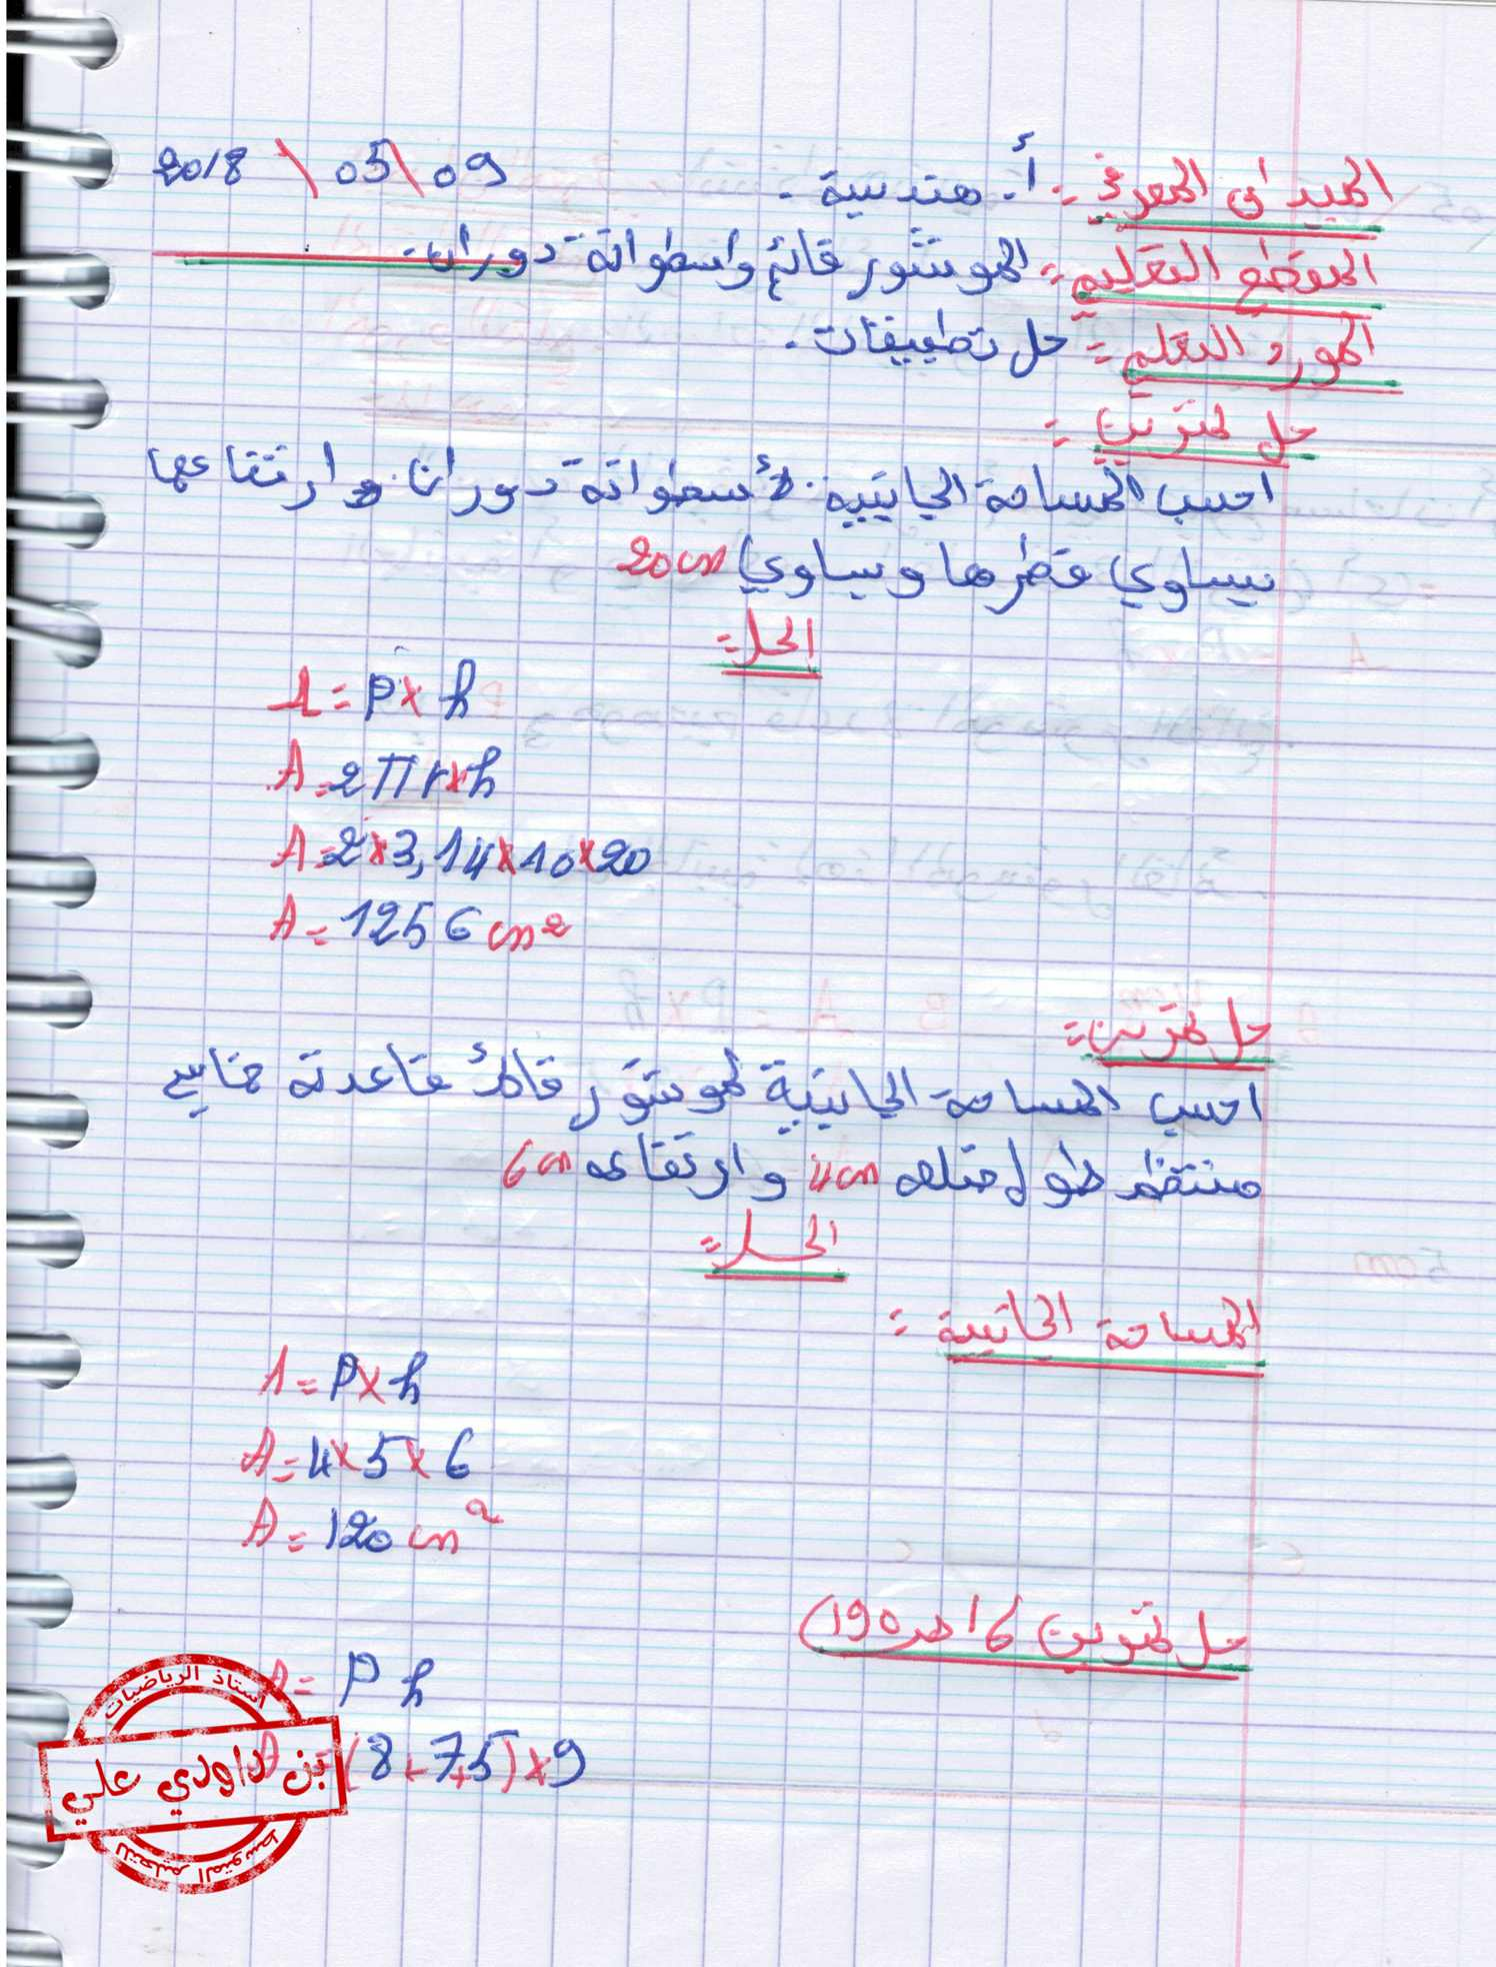 2018 \ 05 \ 09
الميدان المعرفي :- أ. هندسية .
المقطع التعليم :- الموشور قائم واسطوانة دوران.
المورد التعلم :- حل تطبيقات .
حل تمرين :
احسب المساحة الجانبية لأسطوانة دوران وارتفاعها
يساوي قطرها ويساوي 20cm
الحل :-
A = P x h
A = 2πr x h
A = 2 x 3,14 x 10 x 20
A = 1256 cm²
حل تمرين :-
احسب المساحة الجانبية لموشور قائم قاعدته خماسي
منتظم طول ضلعه 4cm وارتفاعه 6cm
الحل :-
المساحة الجانبية :
A = P x h
A = 4 x 5 x 6
A = 120 cm²
حل تمرين 6 ص 190)
A = P h
A = (8 + 7,5) x 9
أستاذ الرياضيات
بن داودي علي
للتعليم المتوسط